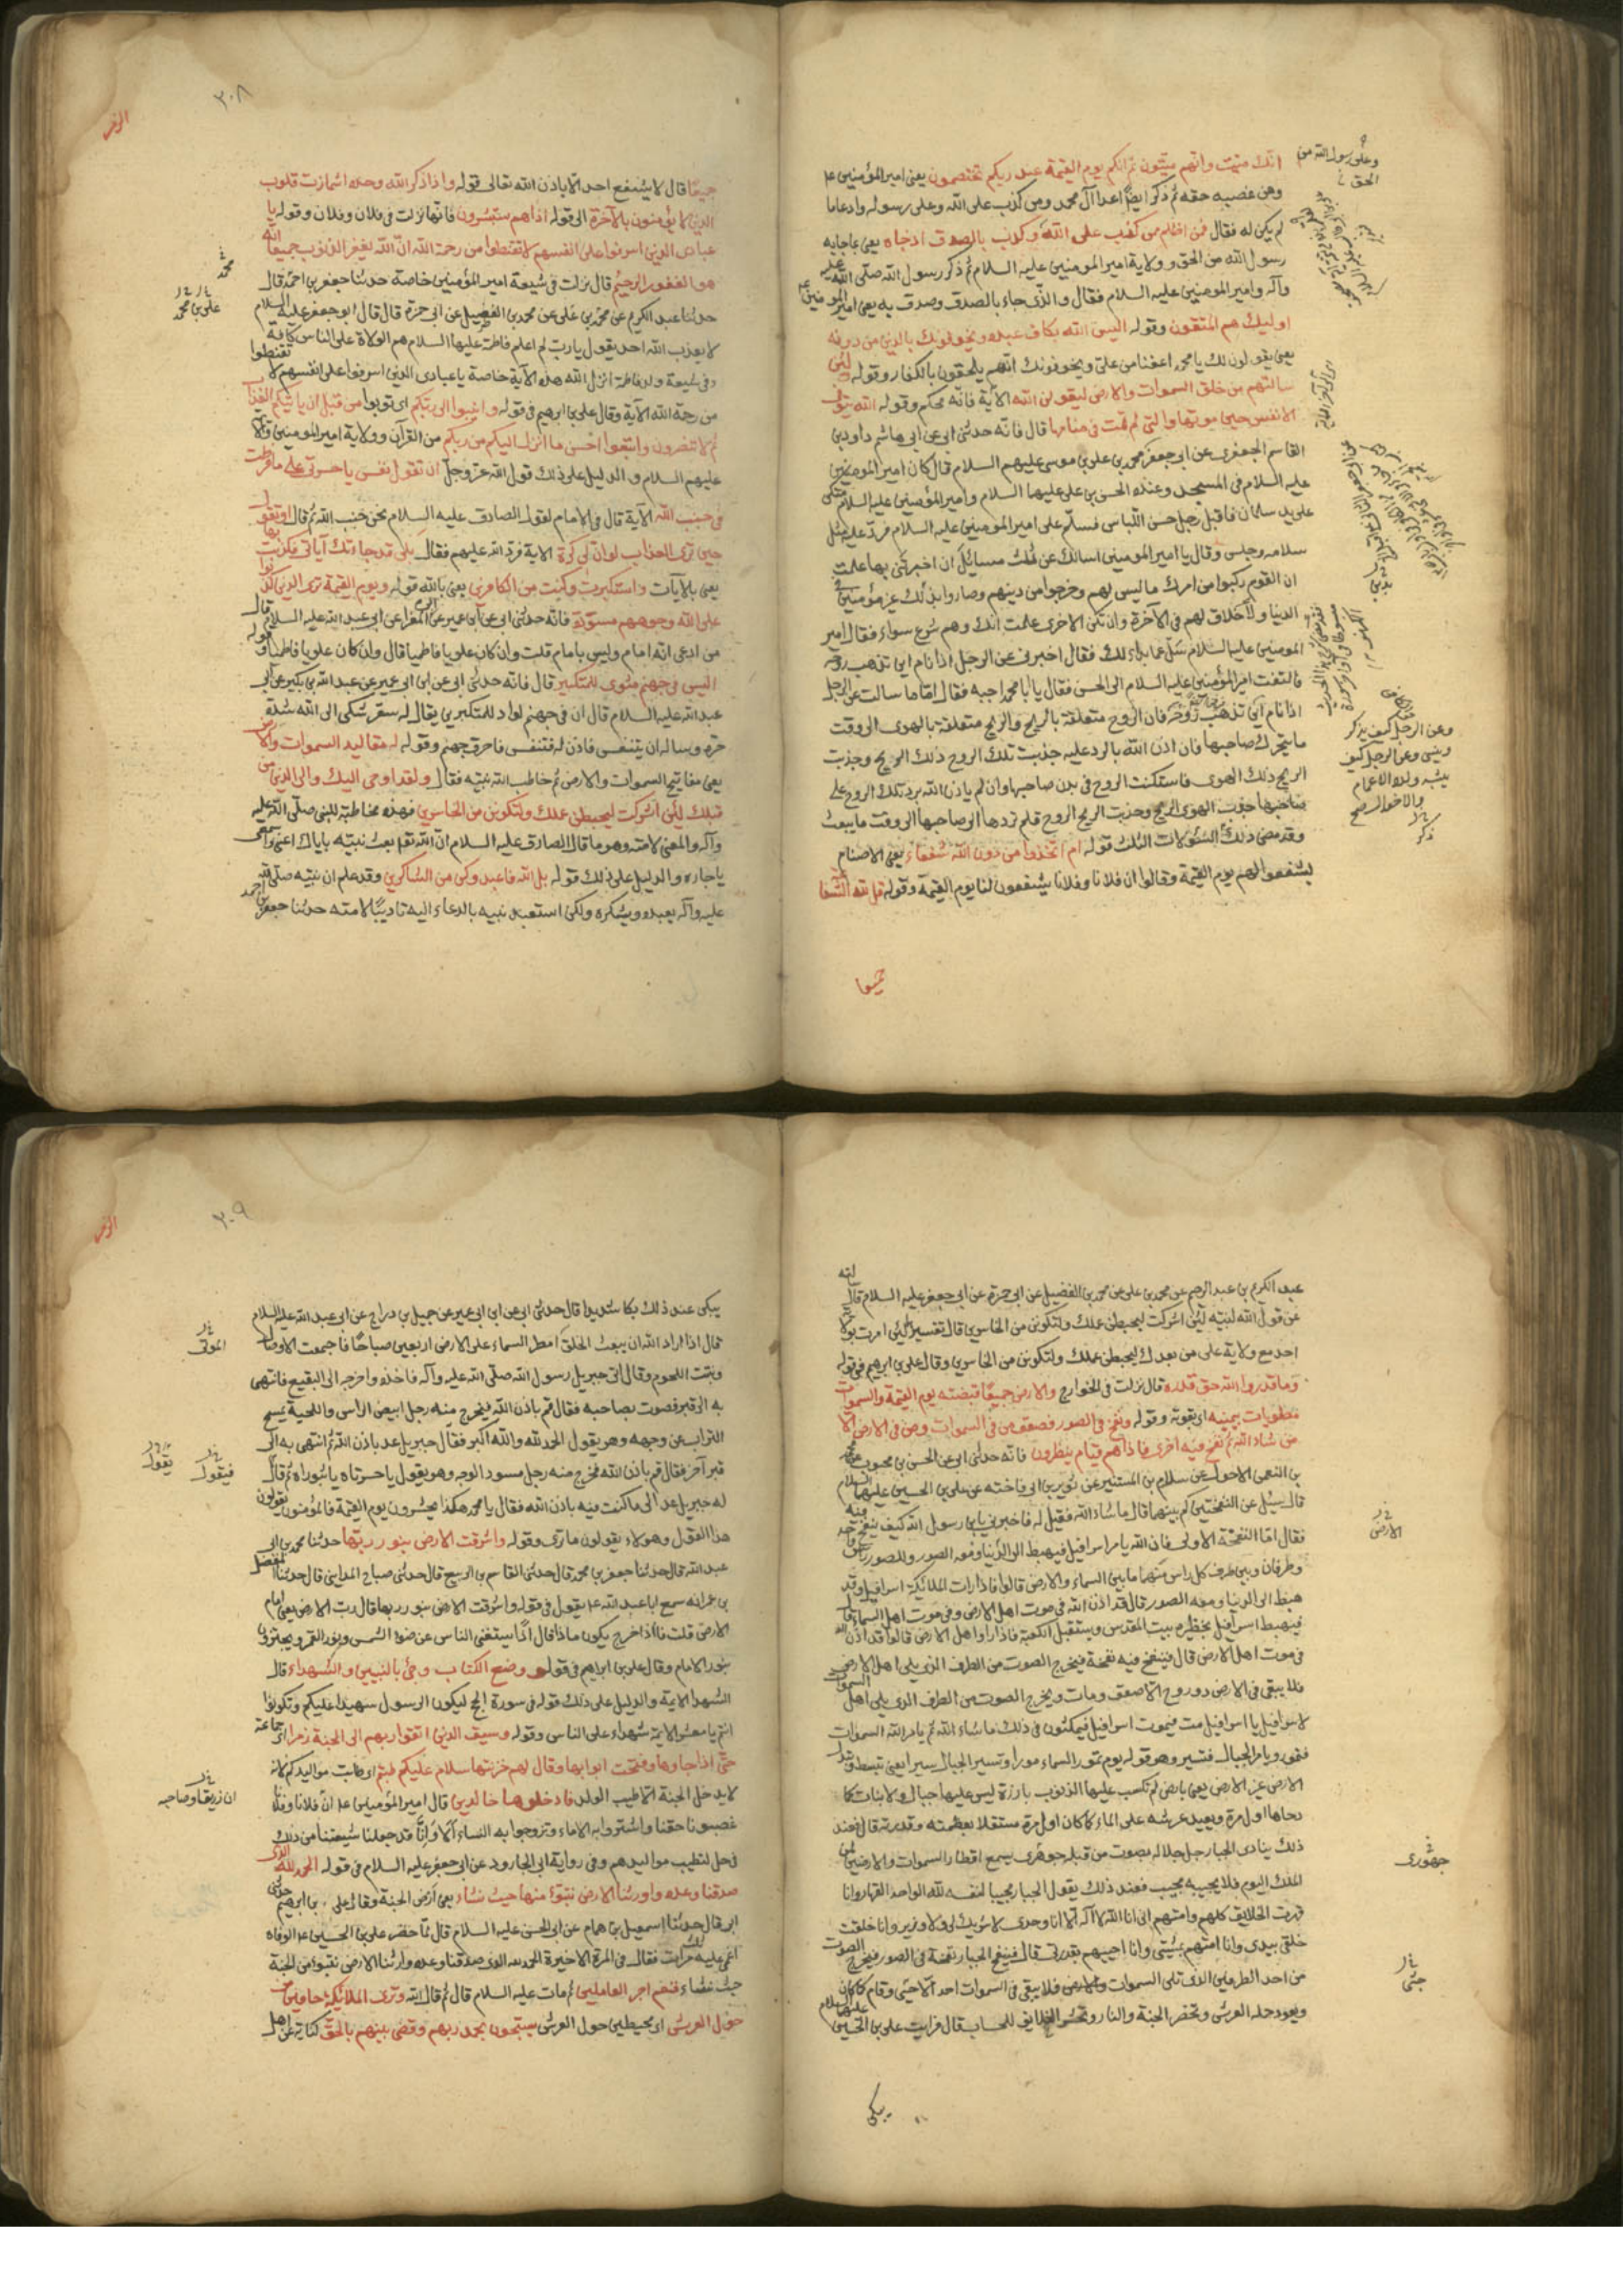 انك ميت وانهم ميتون ثم انكم يوم القيمة عند ربكم تختصمون يعنى امير المؤمنين ع
ومن غصبه حقه ثم ذكر ايضا اعدا آل محمد ومن كذب على الله وعلى رسوله وادعا ما
لم يكن له فقال فمن اظلم ممن كذب على الله وكذب بالصدق اذ جاه يعنى بما جابه
رسول الله من الحق وولاية امير المومنين عليه السلام ثم ذكر رسول الله صلى الله عليه
وآله وامير المومنين عليه السلام فقال والذى جاء بالصدق وصدق به يعنى امير المومنين ع
اوليك هم المتقون وقوله اليس الله بكاف عبده ويخوفونك بالذين من دونه
يعنى يقولون لك يا محمد اعفنا من على ويخوفونك انهم يلحقون بالكفار وقوله ولئن
سالتهم من خلق السموات والارض ليقولن الله الآية فانه محكم وقوله الله يتوفى
الانفس حين موتها والتى لم تمت فى منامها قال فانه حدثنى ابى عن ابى هاشم داود بن
القاسم الجعفرى عن ابى جعفر محمد بن على بن موسى عليهم السلام قال كان امير المومنين
عليه السلام فى المسجد وعنده الحسن بن على عليهما السلام وامير المؤمنين عليه السلام متكى
على يد سلمان فاقبل رجل حسن اللباس فسلم على امير المومنين عليه السلام فرد عليه مثل
سلامه وجلس وقال يا امير المومنين اسالك عن ثلث مسايل ان اخبرتنى بها علمت
ان القوم ركبوا من امرك ما ليس لهم وخرجوا من دينهم وصاروا بذلك غير مؤمنين فى
الدنيا ولا خلاق لهم فى الآخرة وان تكن الاخرى علمت انك وهم شرع سواء فقال امير
المومنين عليه السلام سل عما بدا لك فقال اخبرنى عن الرجل اذا نام اين تذهب روحه
فالتفت امير المؤمنين عليه السلام الى الحسن فقال يا با محمد اجبه فقال اما ما سالت عن الرجل
اذا نام اين تذهب روحه فان الروح متعلقة بالريح والريح متعلقة بالهوى الى وقت
ما يتحرك صاحبها فان اذن الله بالرد عليه جذبت تلك الروح ذلك الريح وجذبت
الريح ذلك الهوى فاستكنت الروح فى بدن صاحبها وان لم ياذن الله برد تلك الروح على
صاحبها جذب الهوى الريح وجذبت الريح الروح فلم تردها الى صاحبها الى وقت ما يبعث
وقد مضى ذلك السئولات الثلث قوله ام اتخذوا من دون الله شفعاء يعنى الاصنام
ليشفعوا لهم يوم القيمة وقالوا ان فلانا وفلانا يشفعون لنا يوم القيمة وقوله قل لله الشفا
جميعا
وعلى رسول الله من
الحق
وعن الرجل كيف يذكر
وينسى وعن الرجل كيف
يشبه ولده الاعمام
والاخوال صح
٣٠٨
الزمر
جميعا قال لا يشفع احد الا باذن الله تعالى قوله واذا ذكر الله وحده اشمازت قلوب
الذين لا يؤمنون بالآخرة الى قوله اذا هم يستبشرون فانها نزلت فى فلان وفلان وقوله يا
عبادى الذين اسرفوا على انفسهم لا تقنطوا من رحمة الله ان الله يغفر الذنوب جميعا انه
هو الغفور الرحيم قال نزلت فى شيعة امير المؤمنين خاصة حدثنا جعفر بن احمد قال
حدثنا عبد الكريم عن محمد بن على عن محمد بن الفضيل عن ابى حمزة قال قال ابو جعفر عليه السلام
لا يعذب الله احد يقول يا رب لم اعلم فاطمة عليها السلام هم الولاة على الناس كافة
وفى شيعة ولد فاطمة انزل الله هذه الآية خاصة يا عبادى الذين اسرفوا على انفسهم لا تقنطوا
من رحمة الله الآية وقال على بن ابرهيم فى قوله وانيبوا الى ربكم اى توبوا من قبل ان ياتيكم العذاب
ثم لا تنصرون واتبعوا احسن ما انزل اليكم من ربكم من القرآن وولاية امير المومنين والائمة
عليهم السلام والدليل على ذلك قول الله عز وجل ان تقول نفس يا حسرتى على ما فرطت
فى جنب الله الآية قال فى الامام لقول الصادق عليه السلام نحن جنب الله ثم قال او تقول
حين ترى العذاب لو ان لى كرة الاية فرد الله عليهم فقال بلى قد جاءتك آياتى فكذبت بها
يعنى بالآيات واستكبرت وكنت من الكافرين يعنى بالله قوله ويوم القيمة ترى الذين كذبوا
على الله وجوههم مسودة فانه حدثنى ابى عن ابن ابى عمير عن ابى المغرا عن ابى عبد الله عليه السلام قال
من ادعى انه امام وليس بامام قلت وان كان علويا فاطميا قال وان كان علويا فاطميا وقوله
اليس فى جهنم مثوى للمتكبرين قال فانه حدثنى ابى عن ابن ابى عمير عن عبد الله بن بكير عن ابى
عبد الله عليه السلام قال ان فى جهنم لواد للمتكبرين يقال له سقر شكى الى الله شدة
حره وساله ان يتنفس فاذن له فتنفس فاحرق جهنم وقوله له مقاليد السموات والارض
يعنى مفاتيح السموات والارض ثم خاطب الله نبيه فقال ولقد اوحى اليك والى الذين من
قبلك لئن اشركت ليحبطن عملك ولتكونن من الخاسرين فهذه مخاطبة للنبى صلى الله عليه
وآله والمعنى لامته وهو ما قال الصادق عليه السلام ان الله تع بعث نبيه باياك اعنى واسمعى
يا جاره والدليل على ذلك قوله بل الله فاعبد وكن من الشاكرين وقد علم ان نبيه صلى الله
عليه وآله يعبده ويشكره ولكن استعبد نبيه بالدعاء اليه تاديبا لامته حدثنا جعفر بن احمد
محمد
على بن محمد
عبد الكريم بن عبد الرحيم عن محمد بن على عن محمد بن الفضيل عن ابى حمزة عن ابى جعفر عليه السلام قال سالته
عن قول الله لنبيه لئن اشركت ليحبطن عملك ولتكونن من الخاسرين قال تفسيرها لئن امرت بولاية
احد مع ولاية على من بعدك ليحبطن عملك ولتكونن من الخاسرين وقال على بن ابرهيم فى قوله
وما قدروا الله حق قدره قال نزلت فى الخوارج والارض جميعا قبضته يوم القيمة والسموات
مطويات بيمينه اى بقوته وقوله ونفخ فى الصور فصعق من فى السموات ومن فى الارض الا
من شاء الله ثم نفخ فيه اخرى فاذا هم قيام ينظرون فانه حدثنى ابى عن الحسن بن محبوب عن محمد
بن النعمن الاحول عن سلام بن المستنير عن ثوير بن ابى فاخته عن على بن الحسين عليهما السلام
قال سيل عن النفختين كم بينهما قال ما شاء الله فقيل له فاخبرنى يا بن رسول الله كيف ينفخ فيه
فقال اما النفخة الاولى فان الله يامر اسرافيل فيهبط الى الدنيا ومعه الصور وللصور راس واحد
وطرفان وبين طرف كل راس منهما ما بين السماء والارض قال فاذا رات الملائكة اسرافيل وقد
هبط الى الدنيا ومعه الصور قال قد اذن الله فى موت اهل الارض وفى موت اهل السماء قال
فيهبط اسرافيل بحظيرة بيت المقدس ويستقبل الكعبة فاذا راوا اهل الارض قالوا قد اذن الله
فى موت اهل الارض قال فينفخ فيه نفخة فيخرج الصوت من الطرف الذى يلى اهل الارض
فلا يبقى فى الارض ذو روح الا صعق ومات ويخرج الصوت من الطرف الذى يلى اهل السموات
لاسرافيل يا اسرافيل مت فيموت اسرافيل فيمكثون فى ذلك ما شاء الله ثم يامر الله السموات
فتمور ويامر الجبال فتسير وهو قوله يوم تمور السماء مورا وتسير الجبال سيرا يعنى تبسط وتبدل
الارض غير الارض يعنى بارض لم تكسب عليها الذنوب بارزة ليس عليها جبال ولا نبات كما
دحاها اول مرة ويعيد عرشه على الماء كما كان اول مرة مستقلا بعظمته وقدرته قال فعند
ذلك ينادى الجبار جل جلاله بصوت من قبله جوهرى يسمع اقطار السموات والارضين لمن
الملك اليوم فلا يجيبه مجيب فعند ذلك يقول الجبار مجيبا لنفسه لله الواحد القهار وانا
قهرت الخلايق كلهم وامتهم انى انا الله لا اله الا انا وحدى لا شريك لى ولا وزير وانا خلقت
خلقى بيدى وانا امتهم بمشيتى وانا احييهم بقدرتى قال فينفخ الجبار نفخة فى الصور فيخرج الصوت
من احد الطرفين الذى تلى السموات والارض فلا يبقى فى السموات احد الا حيى وقام كما كان
ويعود حملة العرش وتحضر الجنة والنار وتحشر الخلايق للحساب قال فرايت على بن الحسين عليهما السلام
يبكى
الارض
جهورى
حيى
٣٠٩
الزمر
يبكى عند ذلك بكا شديدا قال حدثنى ابى عن ابن ابى عمير عن جميل بن دراج عن ابى عبد الله عليه السلام
قال اذا اراد الله ان يبعث الخلق امطر السماء على الارض اربعين صباحا فاجتمعت الاوصال
ونبتت اللحوم وقال اتى جبريل رسول الله صلى الله عليه وآله فاخذه واخرجه الى البقيع فانتهى
به الى قبر فصوت بصاحبه فقال قم باذن الله فيخرج منه رجل ابيض الراس واللحية يمسح
التراب عن وجهه وهو يقول الحمد لله والله اكبر فقال جبريل عد باذن الله ثم انتهى به الى
قبر آخر فقال قم باذن الله فخرج منه رجل مسود الوجه وهو يقول يا حسرتاه يا ثبوراه ثم قال
له جبريل عد الى ما كنت فيه باذن الله فقال يا محمد هكذا يحشرون يوم القيمة فالمؤمنون يقولون
هذا القول وهولاء يقولون ما ترى وقوله واشرقت الارض بنور ربها حدثنا محمد بن ابى
عبد الله قال حدثنا جعفر بن محمد قال حدثنى القاسم بن الربيع قال حدثنى صباح المداينى قال حدثنا المفضل
بن عمر انه سمع ابا عبد الله ع يقول فى قوله واشرقت الارض بنور ربها قال رب الارض يعنى امام
الارض قلت فاذا خرج يكون ماذا قال اذا يستغنى الناس عن ضوء الشمس ونور القمر ويجتزون
بنور الامام وقال على بن ابراهيم فى قوله ووضع الكتاب وجئ بالنبيين والشهداء قال
الشهدا الايمة والدليل على ذلك قوله فى سورة الحج ليكون الرسول شهيدا عليكم وتكونوا
انتم يا معشر الايمة شهداء على الناس وقوله وسيق الذين اتقوا ربهم الى الجنة زمرا اى جماعة
حتى اذا جاوها وفتحت ابوابها وقال لهم خزنتها سلام عليكم طبتم اى طابت مواليدكم لانه
لا يدخل الجنة الا طيب الولد فادخلوها خالدين قال امير المؤمنين ع ان فلانا وفلانا
غصبونا حقنا واشتروا به الاماء وتزوجوا به النساء الا وانا قد جعلنا شيعتنا من ذلك
فى حل لتطيب مواليدهم وفى رواية ابى الجارود عن ابى جعفر عليه السلام فى قوله الحمد لله الذى
صدقنا وعده واورثنا الارض نتبوّء منها حيث نشاء يعنى ارض الجنة وقال على بن ابرهيم حدثنى
ابى قال حدثنا اسمعيل بن همام عن ابى الحسن عليه السلام قال لما حضر على بن الحسين ع الوفاة
اغمى عليه مرات فقال فى المرة الاخيرة الحمد لله الذى صدقنا وعده واورثنا الارض نتبوء من الجنة
حيث نشاء فنعم اجر العاملين ثم مات عليه السلام قال ثم قال الله وترى الملائكة حافين من
حول العرش اى محيطين حول العرش يسبحون بحمد ربهم وقضى بينهم بالحق كناية عن اهل
الموتى
فيقول
يقول
ان زريقا وصاحبه